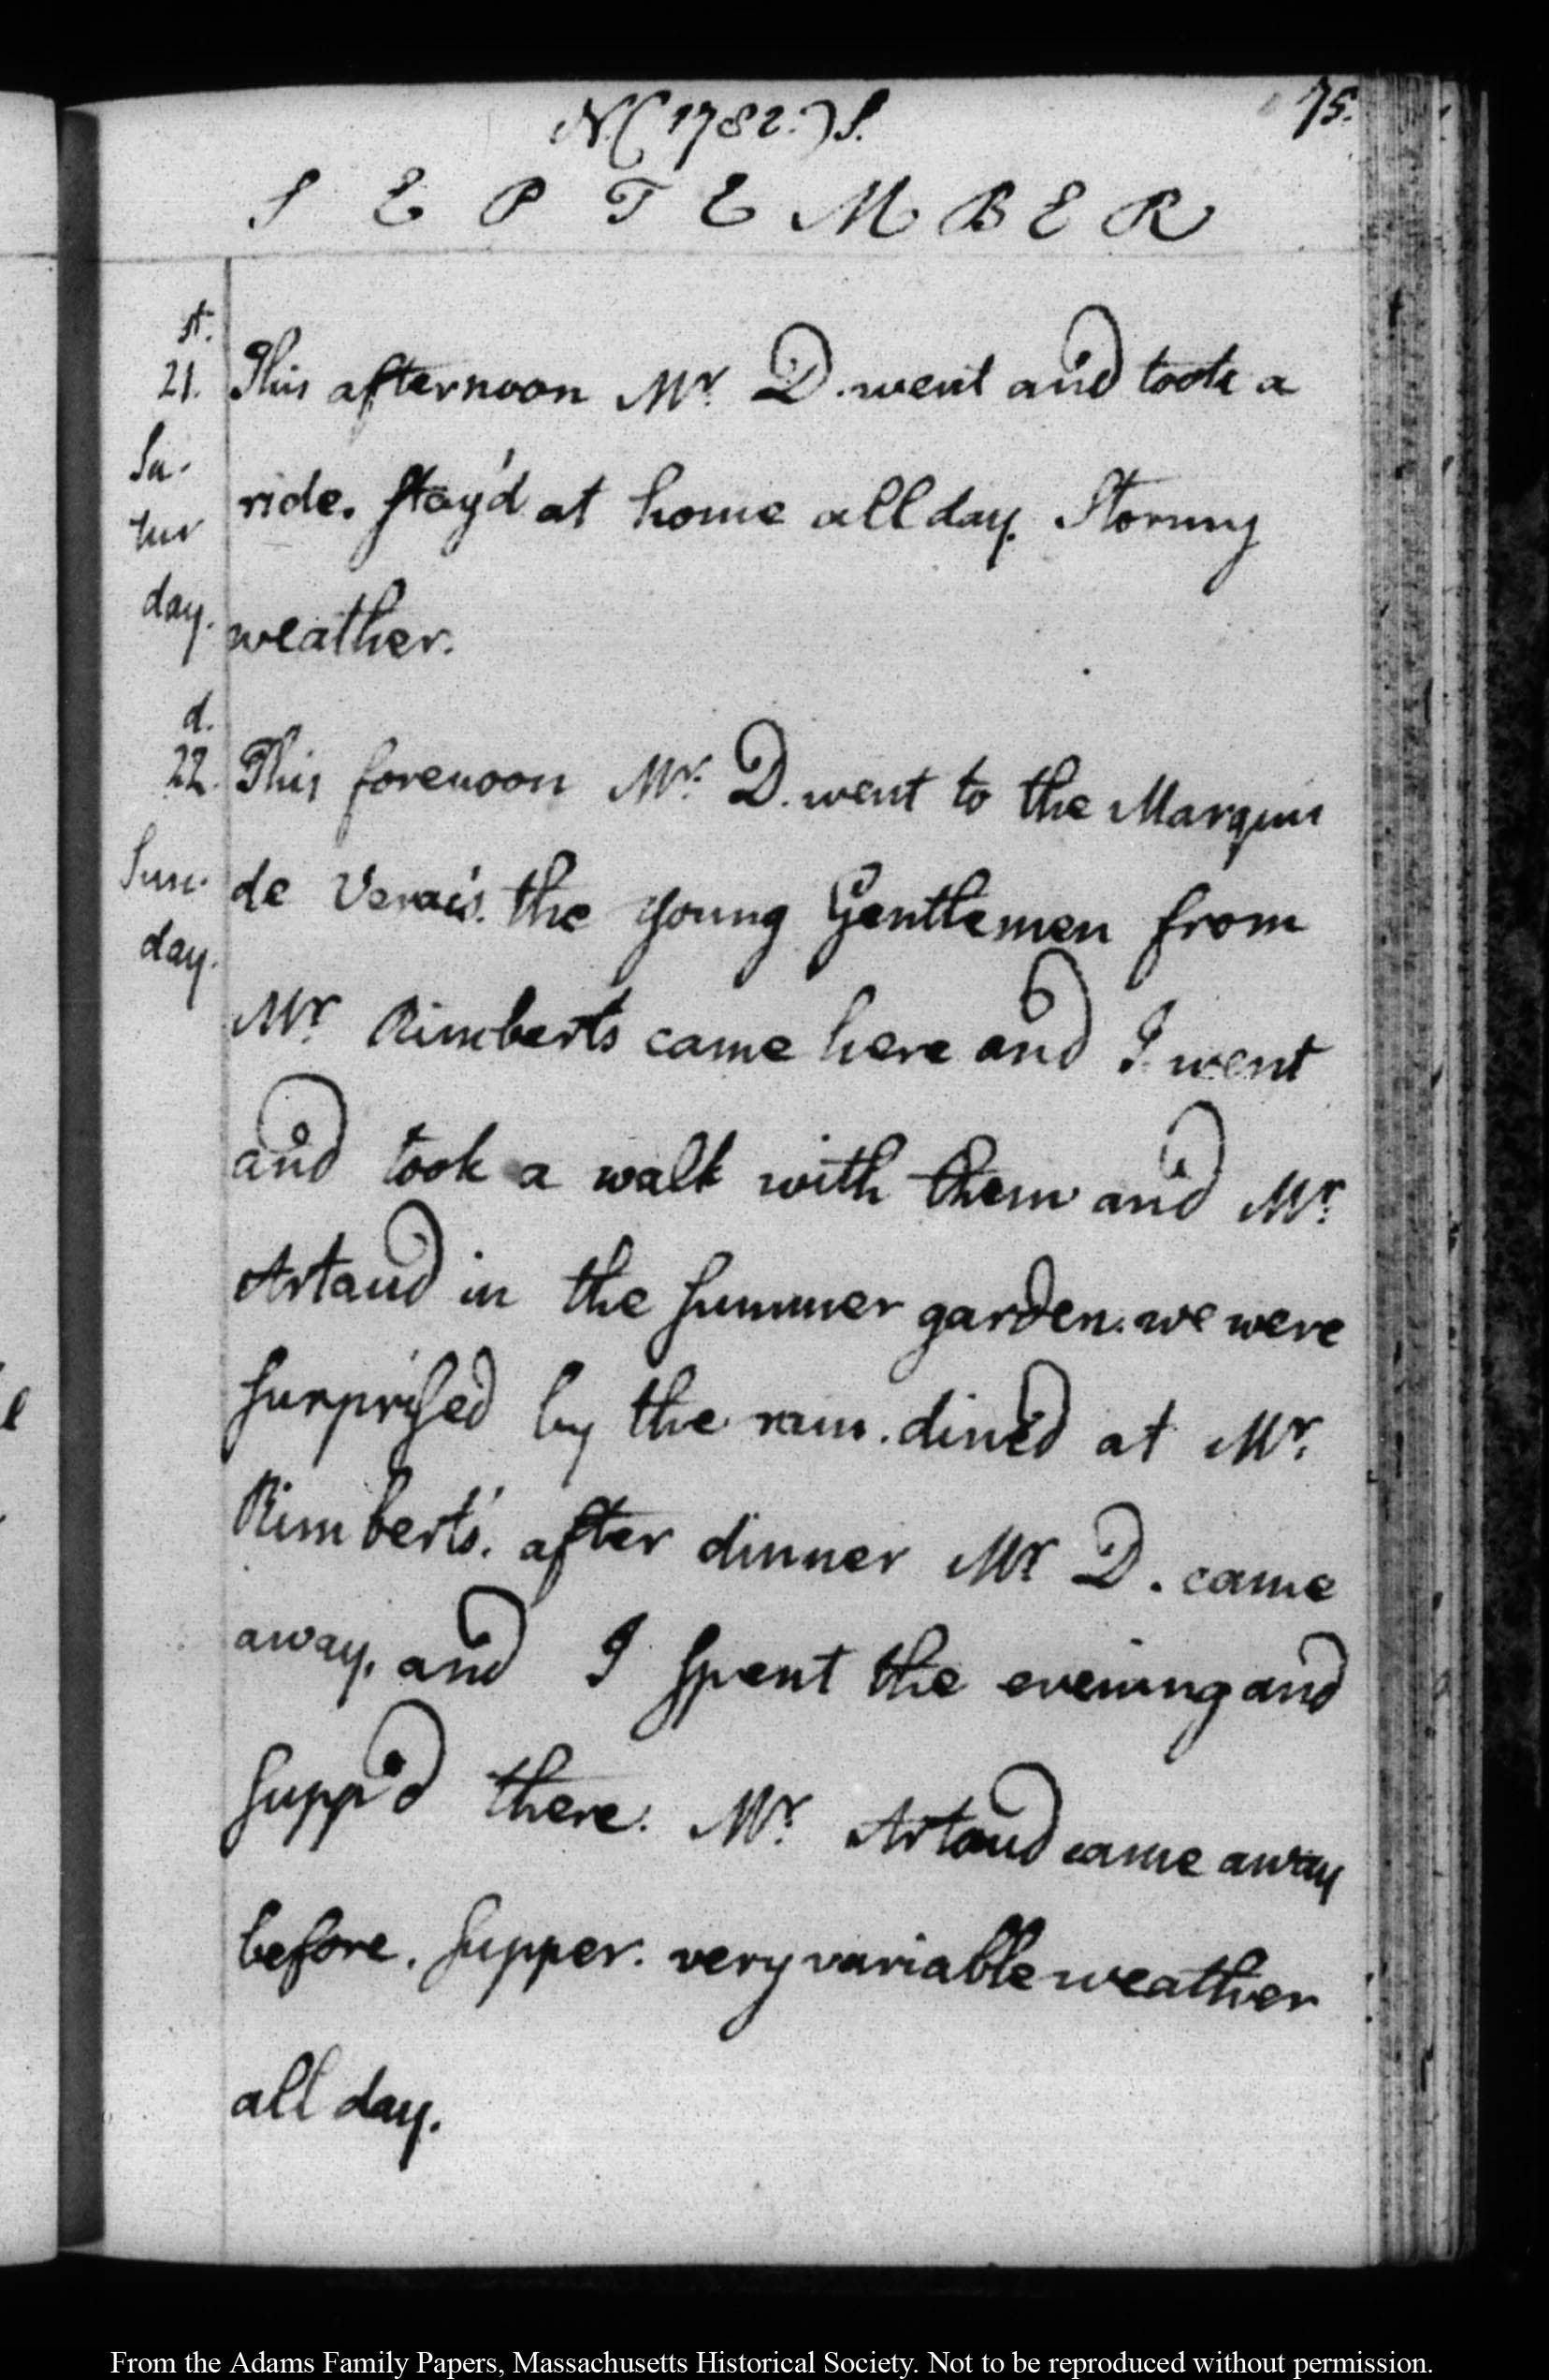 N.(1782.)S.
75.
S E P T E M B E R
st.
21. This afternoon Mr. D. went and took a
Sa-
ride. Stay'd at home all day. Stormy
tur
day.
weather.
d.
22. This forenoon Mr. D. went to the Marquis
Sun-
de Verac's. the young Gentlemen from
day.
Mr. Rimberts came here and I went
and took a walk with them and Mr.
Artaud in the Summer garden. we were
Surprised by the rain. dined at Mr.
Rimbert's. after dinner Mr. D. came
away. and I Spent the evening and
Supp'd there. Mr. Artaud came away
before. Supper. very variable weather
all day.
From the Adams Family Papers, Massachusetts Historical Society. Not to be reproduced without permission.